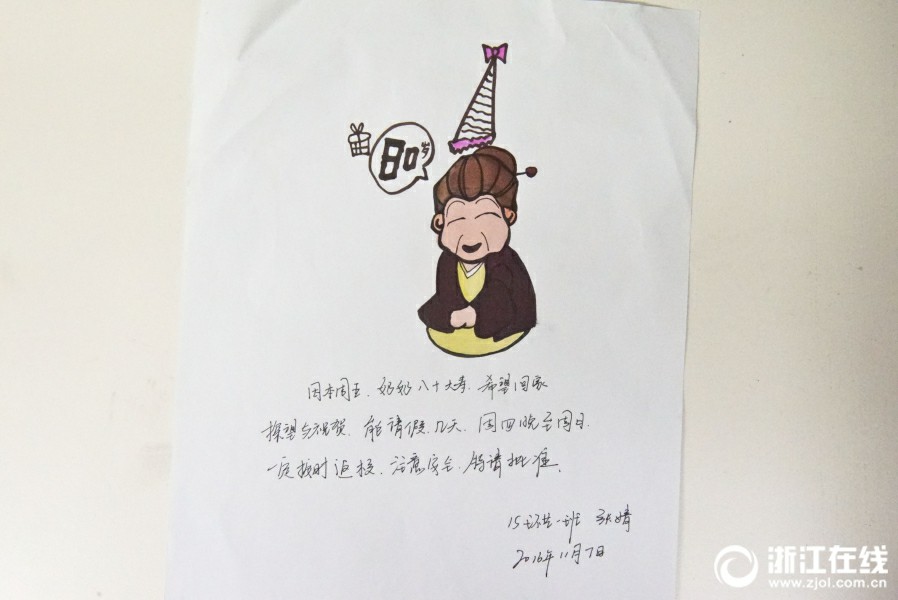 80岁
因本周五、奶奶八十大寿、希望回家
探望与祝贺、能请假几天、周四晚至周日、
一定按时返校、注意安全、特请批准、
15环艺一班 张婧
2016年11月7日
浙江在线
www.zjol.com.cn